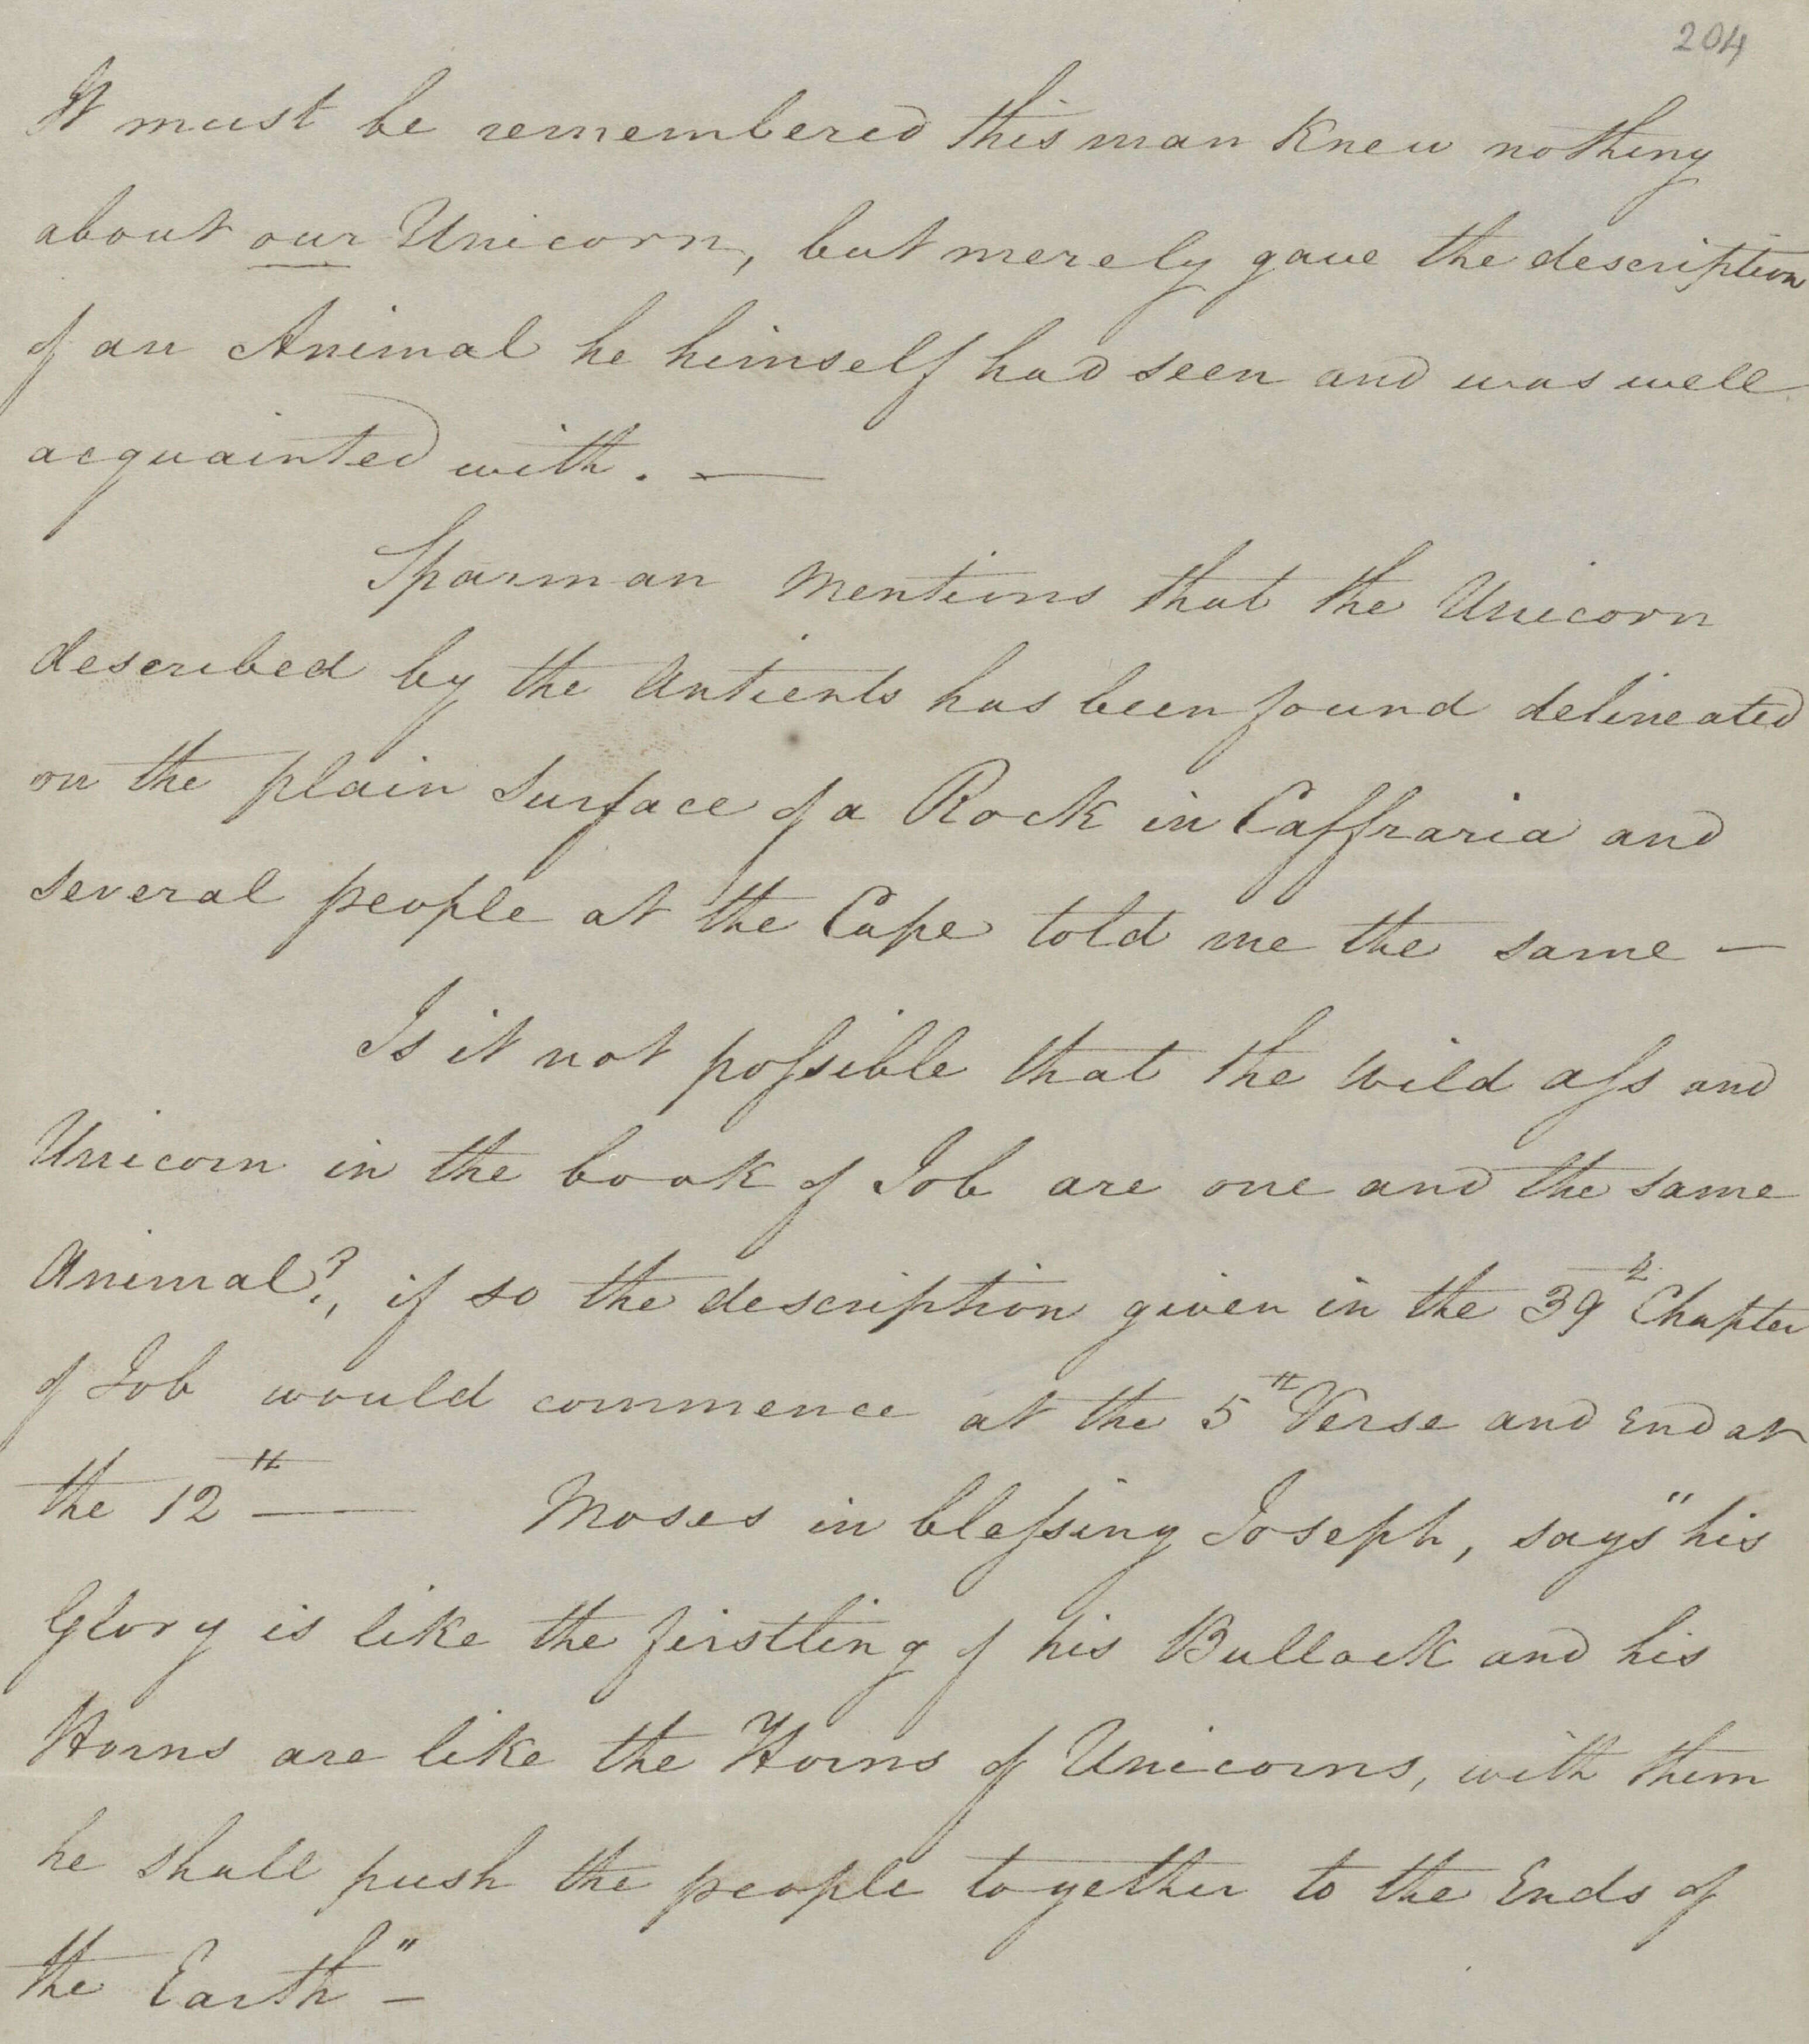 204
It must be remembered this man knew nothing
about our Unicorn, but merely gave the description
of an Animal he himself had seen and was well
acquainted with. —
Sparman mentions that the Unicorn
described by the Antients has been found delineated
on the plain Surface of a Rock in Caffraria and
several people at the Cape told me the same —
Is it not poſsible that the Wild aſs and
Unicorn in the book of Job are one and the same
Animal?, if so the description given in the 39th Chapter
of Job would commence at the 5th Verse and End at
the 12th — Moses in bleſsing Joseph, says "his
Glory is like the firstling of his Bullock and his
Horns are like the Horns of Unicorns, with them
he shall push the people together to the Ends of
the Earth" —